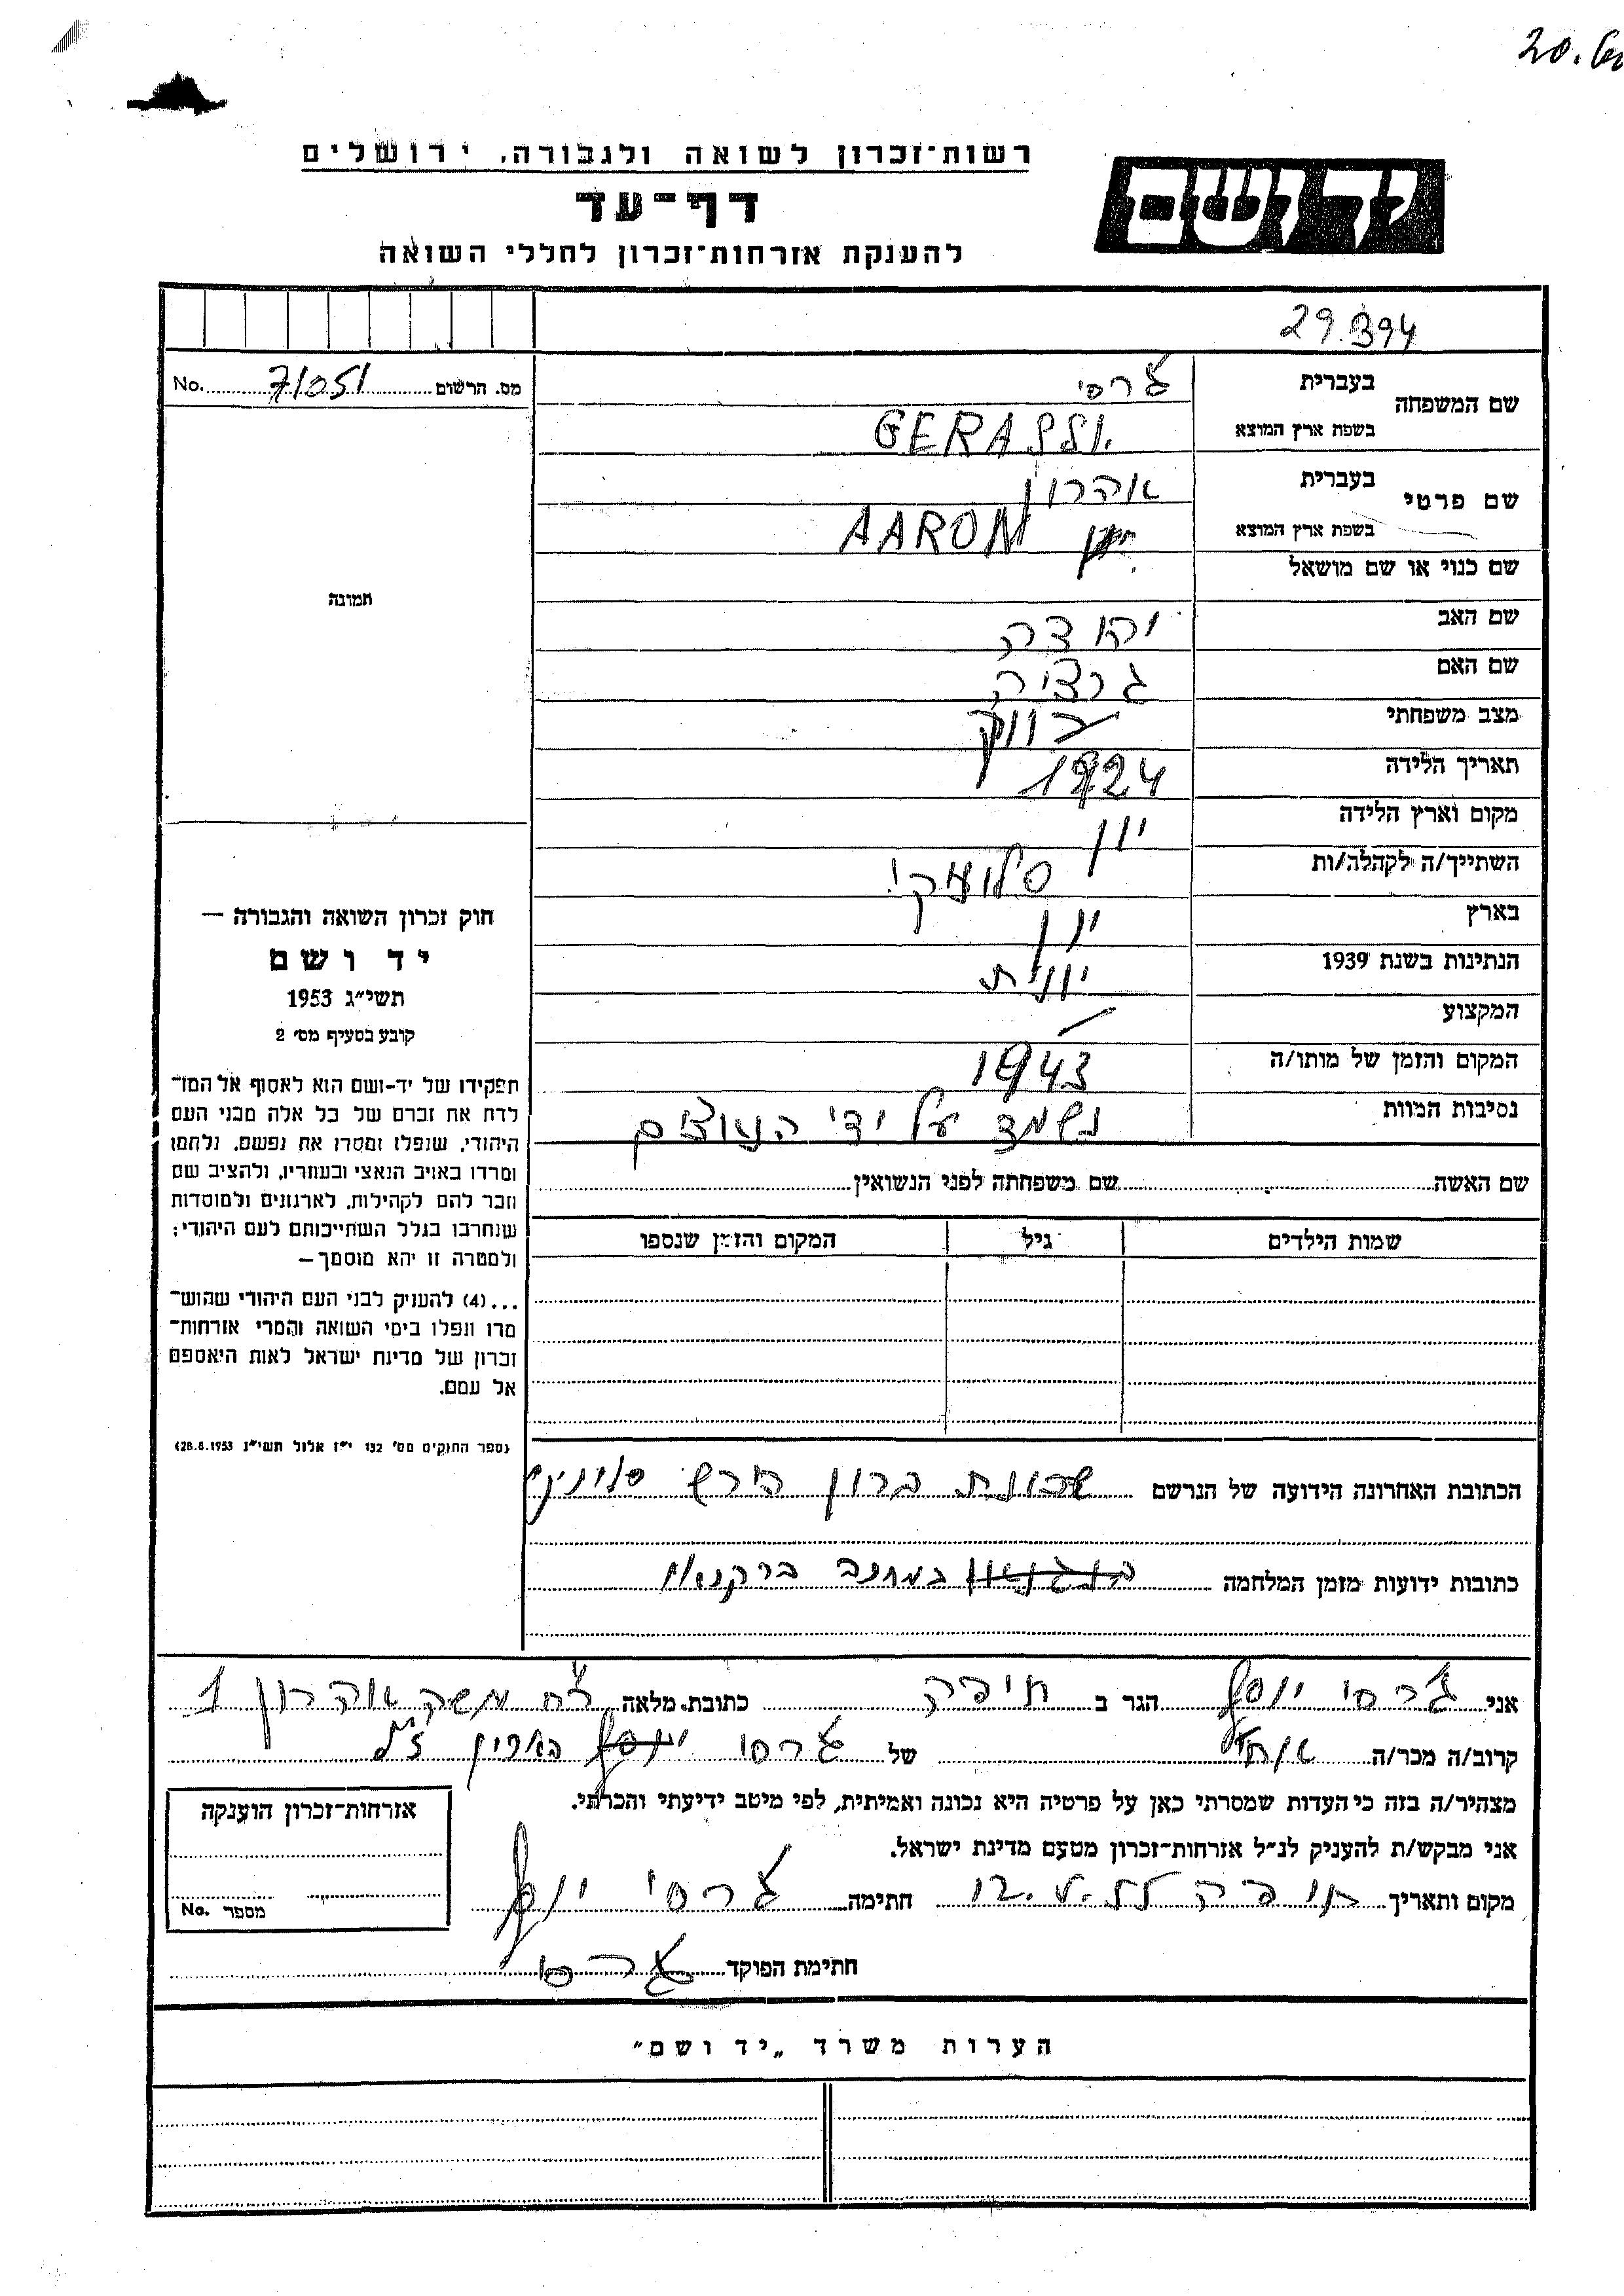 20.
רשות־זכרון לשואה ולגבורה, ירושלים
יד ושם
דף־עד
להענקת אזרחות־זכרון לחללי השואה
29.394
מס. הרשום 71051 No.
שם המשפחה
בעברית גרסי
בשפת ארץ המוצא GERASSI
שם פרטי
בעברית אהרון
בשפת ארץ המוצא AARON
שם כנוי או שם מושאל
שם האב יהודה
שם האם גרציה
מצב משפחתי רווק
תאריך הלידה 1924
מקום וארץ הלידה יון
השתייך/ה לקהלה/ות סלוניקי
בארץ יון
הנתינות בשנת 1939 יוונית
המקצוע
המקום והזמן של מותו/ה 1943
נסיבות המוות נשמד על ידי הנאצים
שם האשה שם משפחתה לפני הנשואין
שמות הילדים גיל המקום והזמן שנספו
תמונה
חוק זכרון השואה והגבורה —
יד ושם
תשי״ג 1953
קובע בסעיף מס׳ 2
תפקידו של יד-ושם הוא לאסוף אל המו־
לדת את זכרם של כל אלה מבני העם
היהודי, שנפלו ומסרו את נפשם, נלחמו
ומרדו באויב הנאצי ובעוזריו, ולהציב שם
וזכר להם לקהילות, לארגונים ולמוסדות
שנחרבו בגלל השתייכותם לעם היהודי;
ולמטרה זו יהא מוסמך —
...(4) להעניק לבני העם היהודי שהוש־
מדו ונפלו בימי השואה והמרי אזרחות־
זכרון של מדינת ישראל לאות היאספם
אל עמם.
(ספר החוקים מס׳ 132 י״ז אלול תשי״ג 28.8.1953)
הכתובת האחרונה הידועה של הנרשם שכונת ברון הירש סלוניקי
כתובות ידועות מזמן המלחמה במחנה בירקנאו
אני גרסי יוסף הגר ב חיפה כתובת מלאה רח משק אהרון 1
קרוב/ה מכר/ה אח של גרסי אהרון ז״ל
מצהיר/ה בזה כי העדות שמסרתי כאן על פרטיה היא נכונה ואמיתית, לפי מיטב ידיעתי והכרתי.
אני מבקש/ת להעניק לנ״ל אזרחות־זכרון מטעם מדינת ישראל.
מקום ותאריך חיפה חתימה גרסי יוסף
חתימת הפוקד גרסי
אזרחות־זכרון הוענקה
מספר No.
הערות משרד „יד ושם״